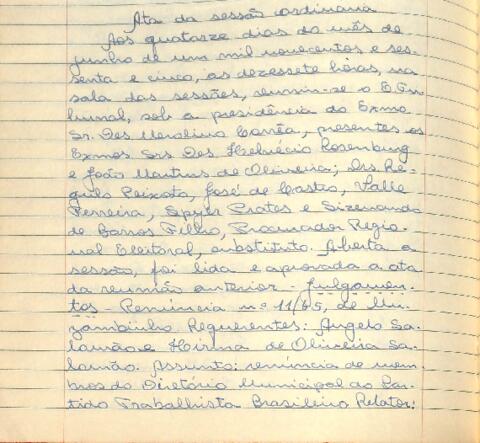 Ata da sessão ordinária
Aos quatorze dias do mês de
junho de um mil novecentos e ses-
senta e cinco, as dezessete horas, na
sala das sessões, reuniu-se o Tri-
bunal, sob a presidência do Exmo
Sr. Des Merolino Corrêa, presentes os
Exmos Srs Des Helvécio Rosenburg
e João Martins de Oliveira; Drs. Ré-
gulo Peixoto, José de Castro, Valle
Ferreira, Spyer Prates e Sizenando
de Barros Filho, Procurador Regio-
nal Eleitoral, substituto. Aberta a
sessão, foi lida e aprovada a ata
da reunião anterior. - Julgamen-
tos - Renúncia nº 11/65, de Mu-
zambinho Requerentes: Angelo Sa-
lomão e Hirma de Oliveira Sa-
lomão. Assunto: renúncia de mem-
bros do Diretório Municipal do Par-
tido Trabalhista Brasileiro Relator: